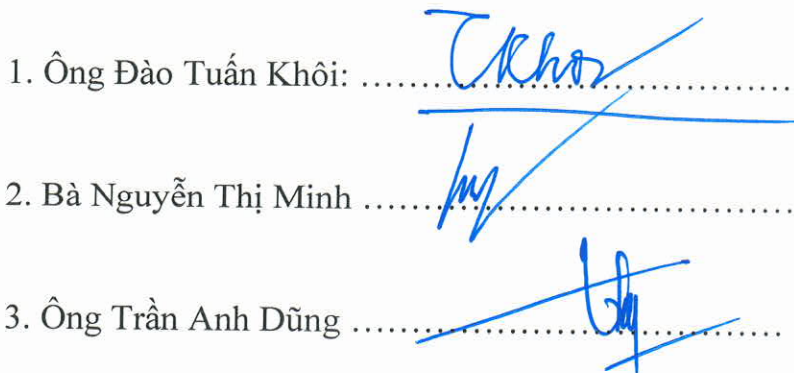 1. Ông Đào Tuấn Khôi: ........................................
2. Bà Nguyễn Thị Minh ........................................
3. Ông Trần Anh Dũng ........................................